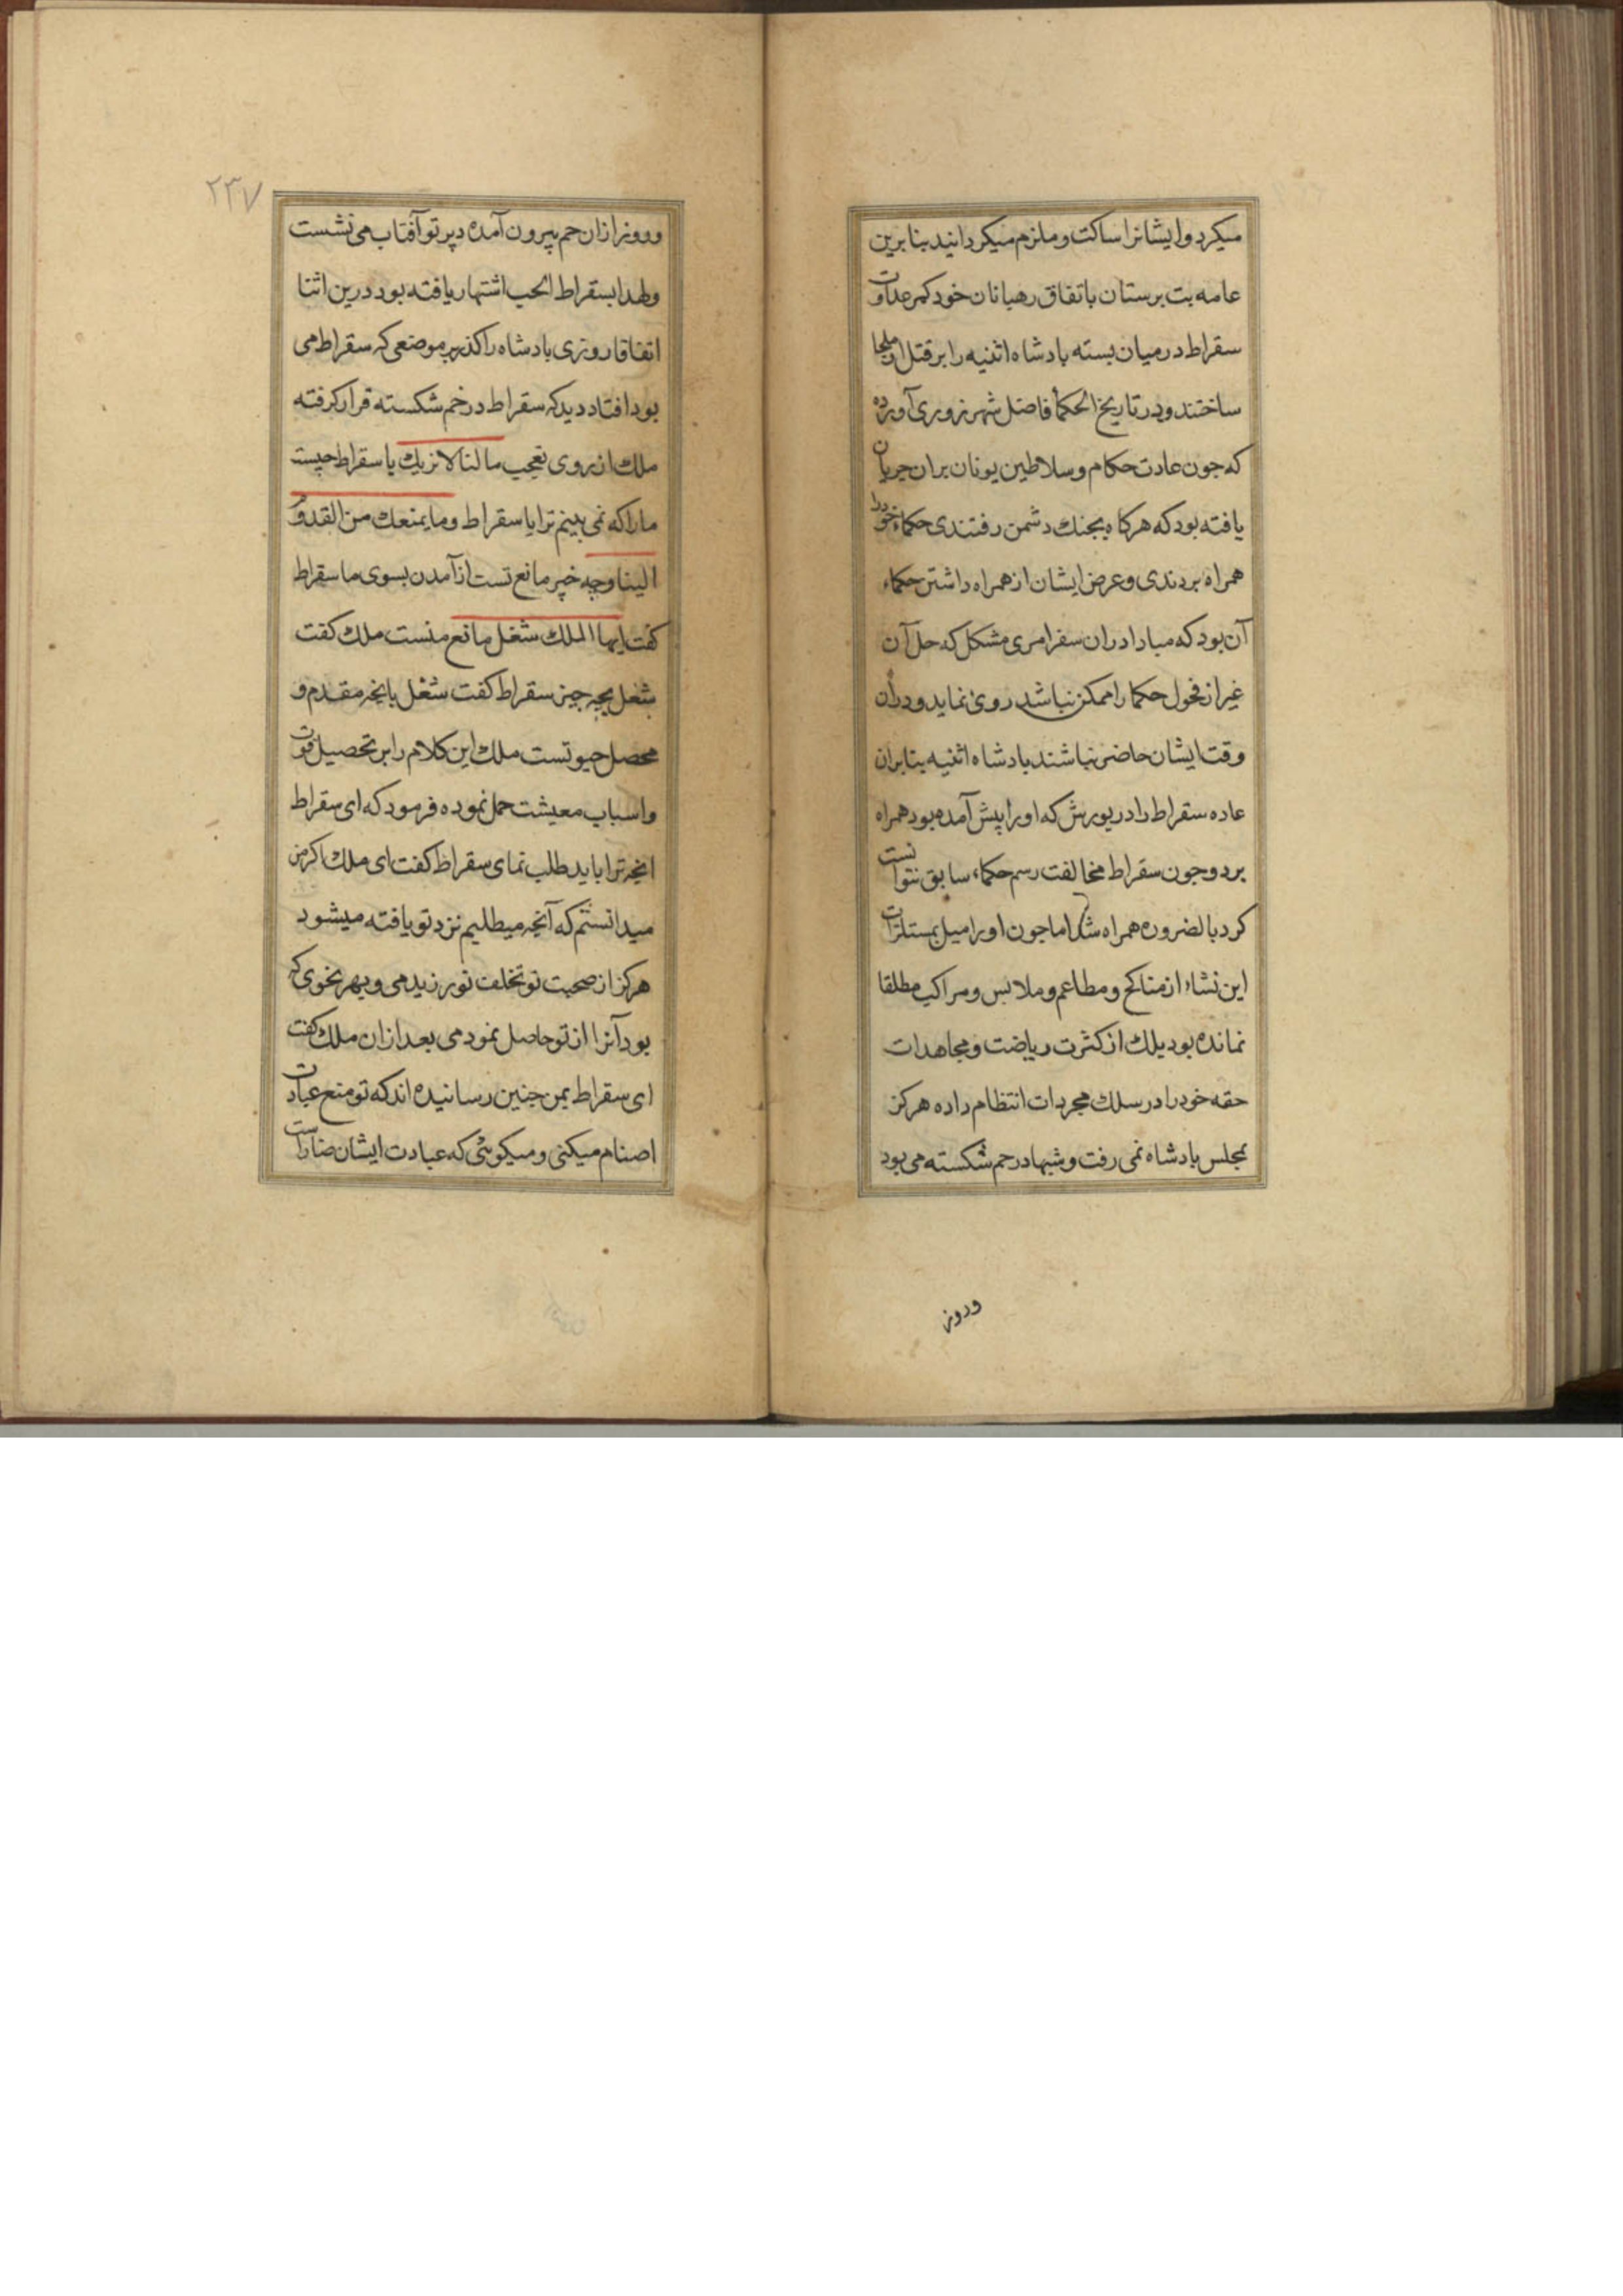 میکرد و ایشانرا ساکت و ملزم میکردانید بنابرین
عامه بت برستان باتفاق رهبانان خود کمر عداوت
سقراط در میان بسته بادشاه اثنیه را بر قتل آن ملجا
ساختند و در تاریخ الحکما فاضل شهرزوری آورده
که جون عادت حکام و سلاطین یونان بران جریان
یافته بود که هرکاه بجنك دشمن رفتندی حکماء خودرا
همراه بردندی و عرض ایشان از همراه داشتن حکماء
آن بود که مبادا دران سفر امری مشکل که حل آن
غیر از فحول حکما را ممکن نباشد روی نماید و دران
وقت ایشان حاضر نباشند بادشاه اثنیه بنابران
عاده سقراط را در یورش که او را پیش آمده بود همراه
برد و جون سقراط مخالفت رسم حکماء سابق نتوانست
کرد بالضروره همراه شد اما جون او را میل بمستلذات
این نشاء از مناکح و مطاعم و ملابس و مراکب مطلقا
نمانده بود بلك از کثرت ریاضت و مجاهدات
حقه خود را در سلك مجردات انتظام داده هرکز
بمجلس بادشاه نمی رفت و شبها در خم شکسته می بود
وروز
۲۳۷
وروز ازان خم بیرون آمده در پرتو آفتاب می نشست
ولهذا بسقراط الحب اشتهار یافته بود درین اثنا
اتفاقا روزی بادشاه را کذر بر موضعی که سقراط می
بود افتاد دید که سقراط در خم شکسته قرار کرفته
ملك از روی تعجب ما لنا لا نریك یا سقراط چیست
مارا که نمی بینم ترا یا سقراط وما یمنعك من القدوم
الینا و چه خیر مانع تست از آمدن بسوی ما سقراط
کفت ایها الملك شغل مانع منست ملك کفت
شغل بچه چیز سقراط کفت شغل بانچه مقدم و
محصل حیوتست ملك این کلام را بر تحصیل قوت
و اسباب معیشت حمل نموده فرمود که ای سقراط
انچه ترا باید طلب نمای سقراط کفت ای ملك اکر من
میدانستم که آنچه میطلبم نزد تو یافته میشود
هرکز از صحبت تو تخلف نورزیدمی و بهر نحوی که
بود آنرا از تو حاصل نمودمی بعد ازان ملك کفت
ای سقراط بمن جنین رسانیده اند که تو منع عبادت
اصنام میکنی و میکوئی که عبادت ایشان ضاراست